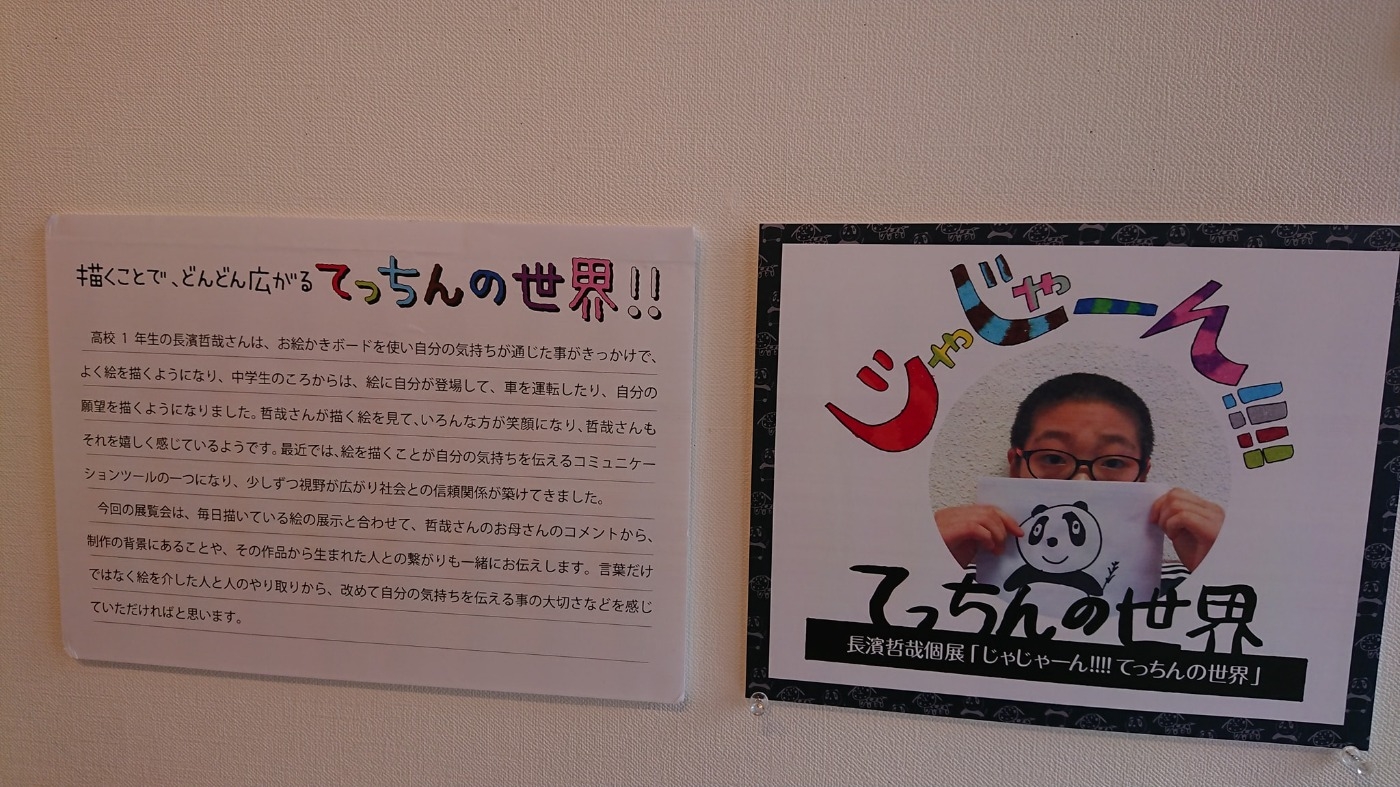 描くことで、どんどん広がるてっちんの世界!!
高校1年生の長濱哲哉さんは、お絵かきボードを使い自分の気持ちが通じた事がきっかけで、
よく絵を描くようになり、中学生のころからは、絵に自分が登場して、車を運転したり、自分の
願望を描くようになりました。哲哉さんが描く絵を見て、いろんな方が笑顔になり、哲哉さんも
それを嬉しく感じているようです。最近では、絵を描くことが自分の気持ちを伝えるコミュニケー
ションツールの一つになり、少しずつ視野が広がり社会との信頼関係が築けてきました。
今回の展覧会は、毎日描いている絵の展示と合わせて、哲哉さんのお母さんのコメントから、
制作の背景にあることや、その作品から生まれた人との繋がりも一緒にお伝えします。言葉だけ
ではなく絵を介した人と人のやり取りから、改めて自分の気持ちを伝える事の大切さなどを感じ
ていただければと思います。
じゃじゃーん!!!!
てっちんの世界
長濱哲哉個展「じゃじゃーん!!!! てっちんの世界」